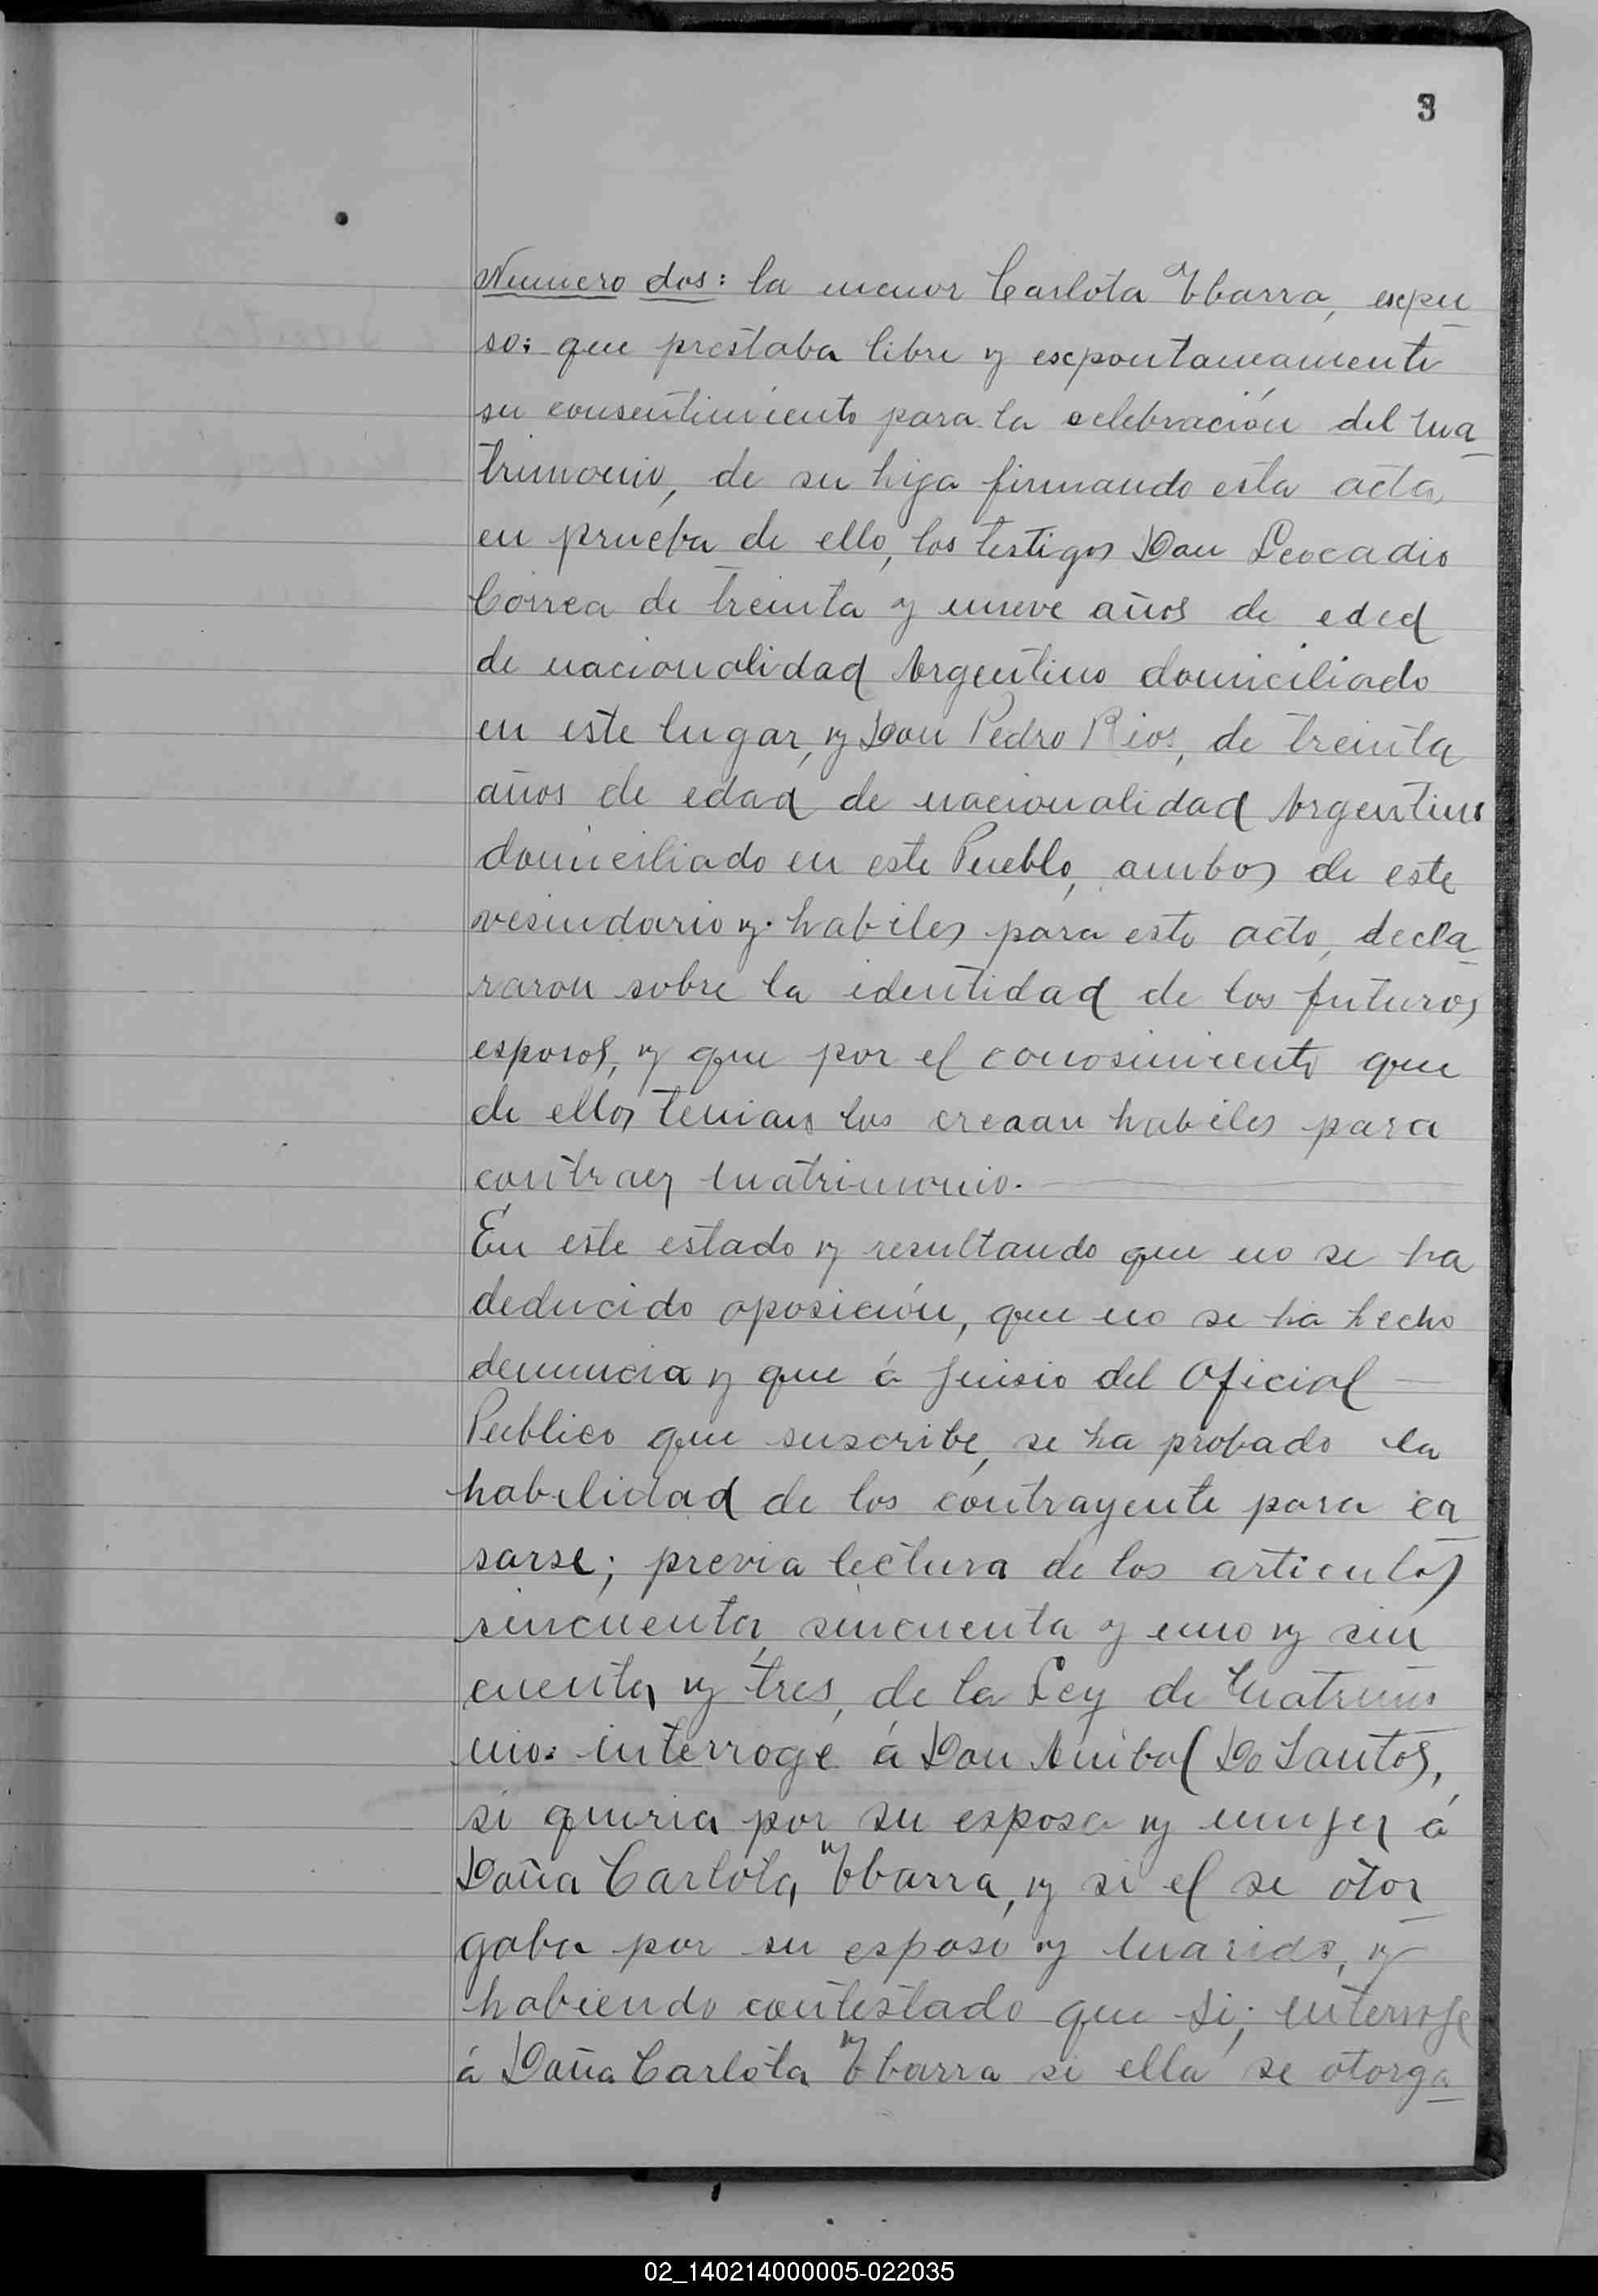 3
Numero dos: la menor Carlota Ybarra, expu
so: que prestaba libre y expontaneamente
su consentimiento para la celebración del ma
trimonio, de su hija firmando esta acta,
en prueba de ello, los testigos Don Leocadio
Correa de treinta y nueve años de eded
de nacionalidad Argentino domiciliado
en este lugar, y Don Pedro Rios, de treinta
años de edad de nacionalidad Argentino
domiciliado en este Pueblo, ambos de este
vesindario y habiles para este acto, decla
raron sobre la identidad de los futuros
esposos, y que por el conosimiento que
de ellos tenian los creaan habiles para
contraer matrimonio.
En este estado y resultando que no se ha
deducido oposición, que no se ha hecho
denuncia y que á juisio del Oficial
Publico que suscribe, se ha probado la
habilidad de los contrayente para ca
sarse; previa lectura de los articulos
sincuenta, sincuenta y uno y sin
cuenta y tres, de la Ley de Matrimo
nio: interrogé á Don Anibal Do Santos,
si queria por su esposa y mujer á
Doña Carlota Ybarra, y si el se otor
gaba por su esposo y marido, y
habiendo contestado que si; interroje
á Doña Carlota Ybarra si ella se otorga
02_140214000005-022035